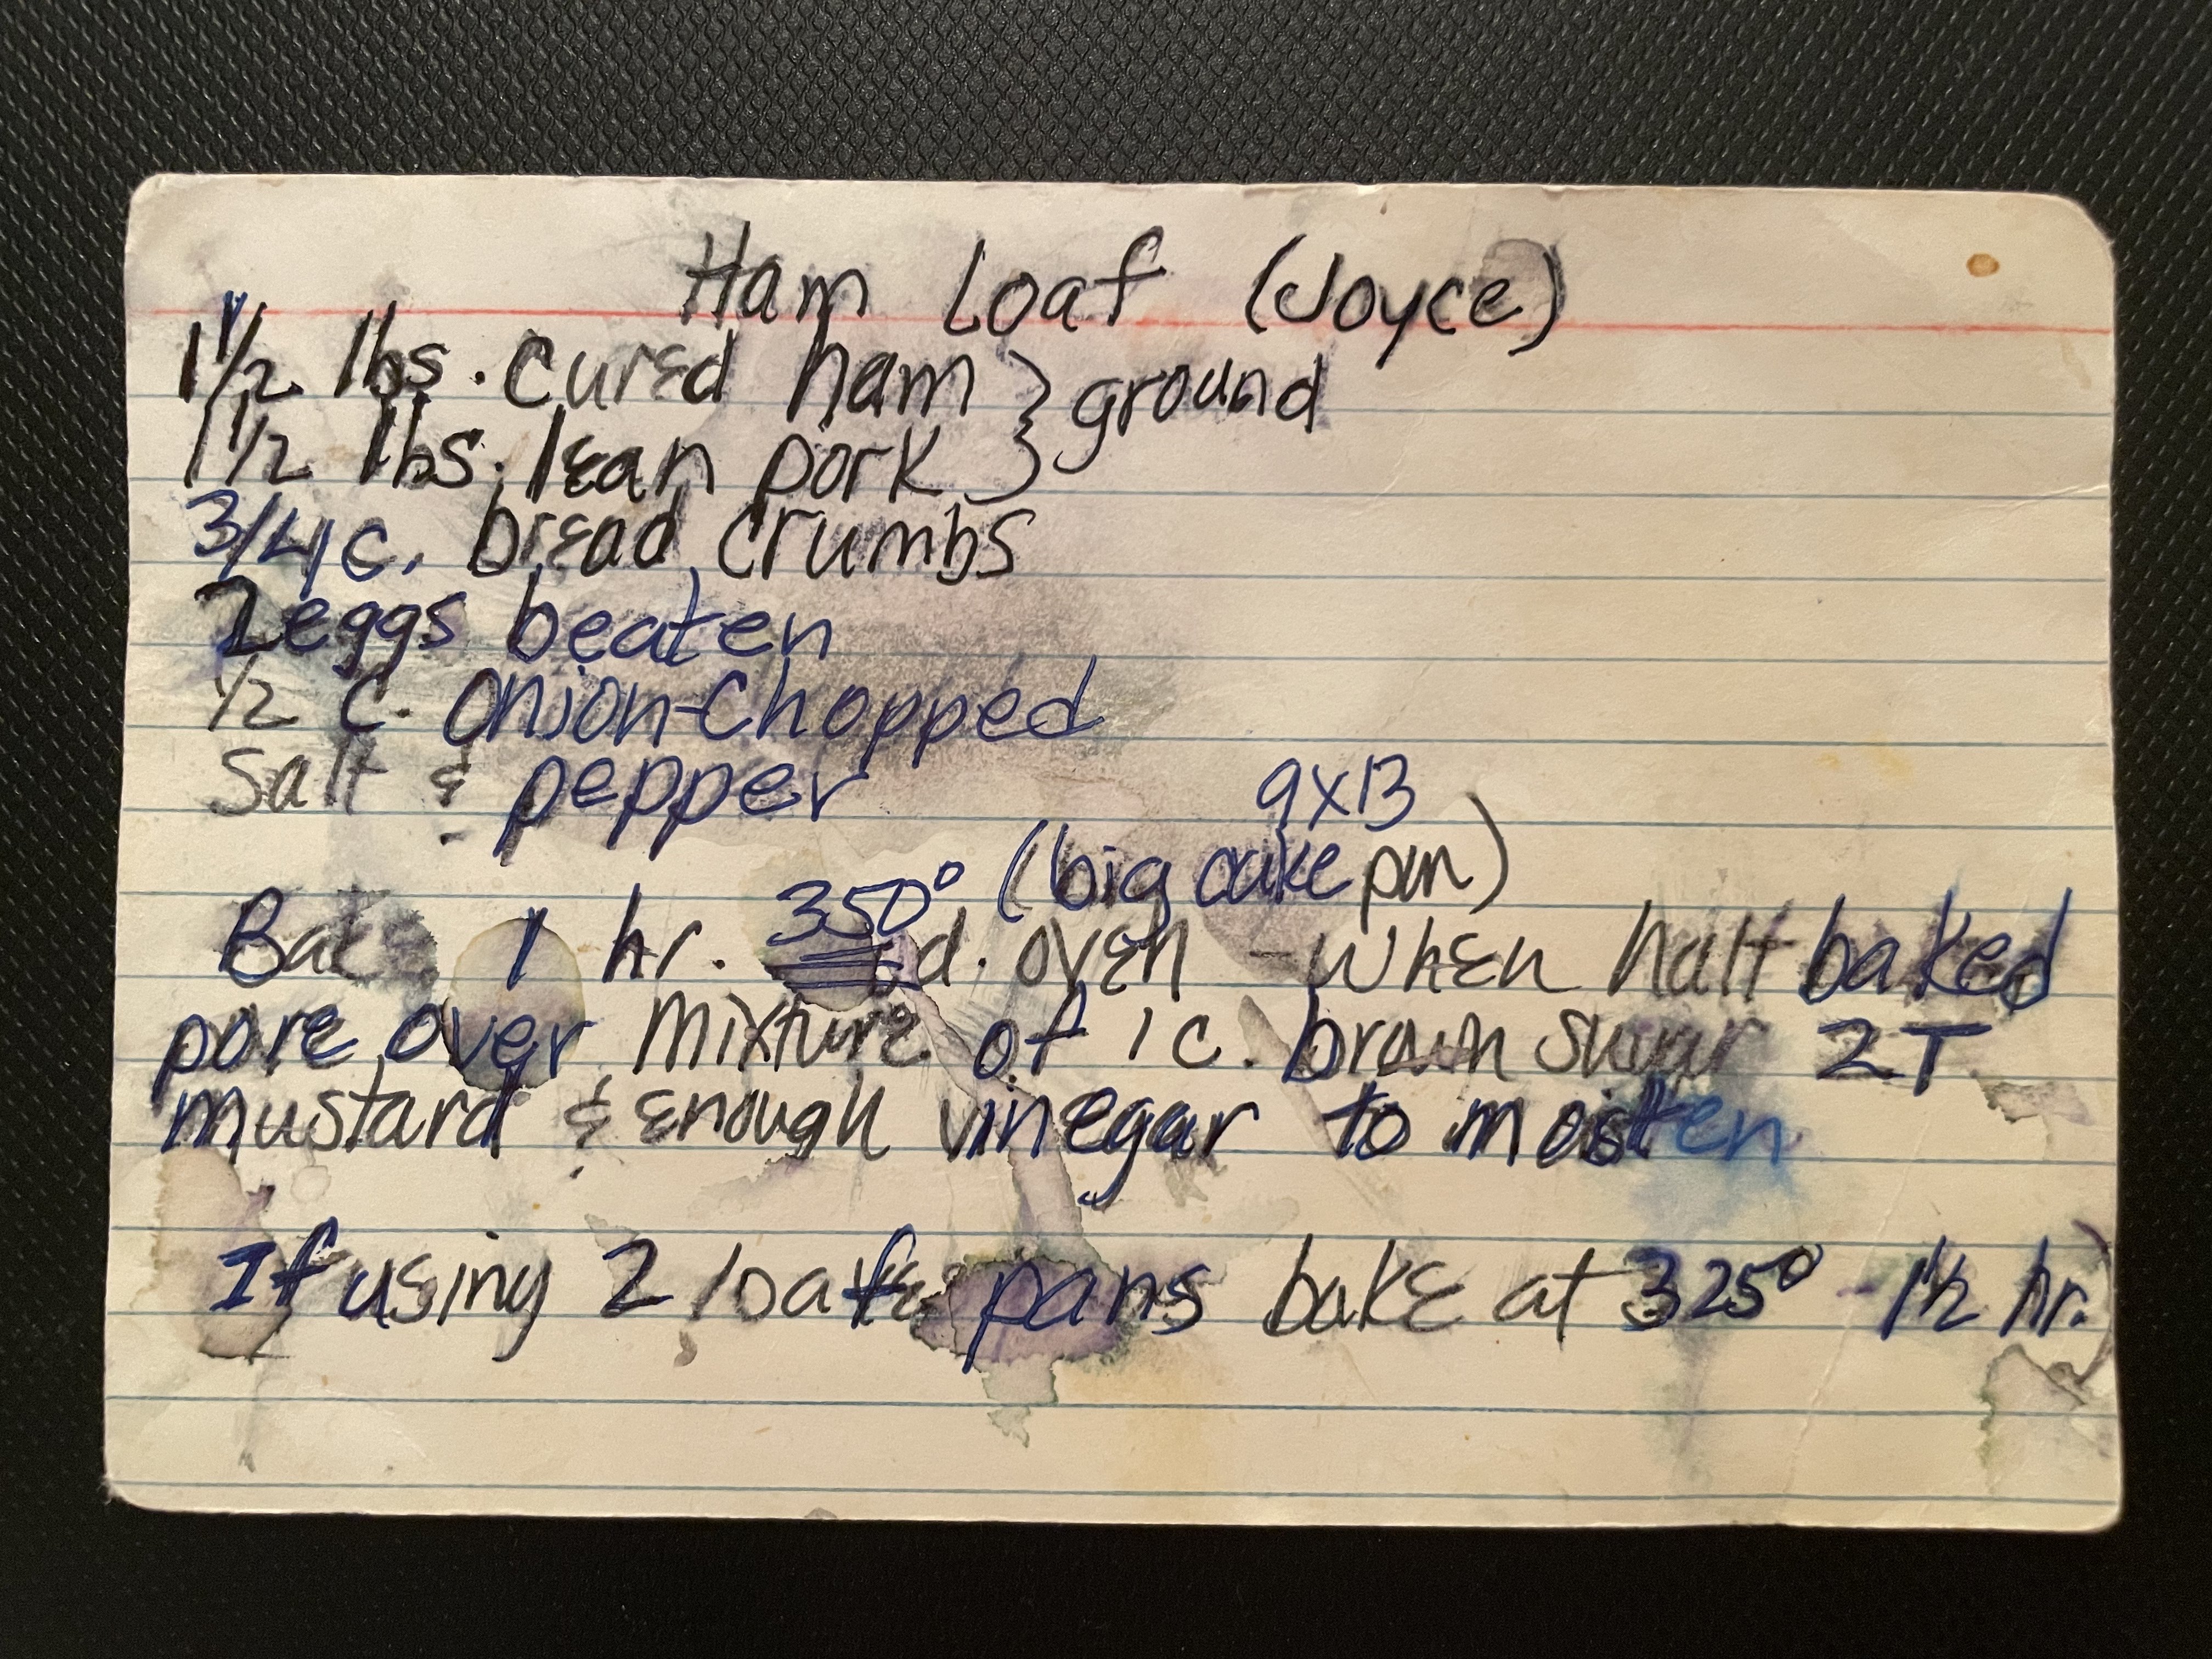 Ham Loaf (Joyce)
1 1/2 lbs. cured ham } ground
1 1/2 lbs. lean pork
3/4 c. bread crumbs
2 eggs beaten
1/2 c. onion-chopped
Salt & pepper
9x13
(big cake pan)
Bake 1 hr. 350° d. oven - when half baked
pore over mixture of 1 c. brown sugar 2T
mustard & enough vinegar to moisten
If using 2 loafe pans bake at 325° - 1 1/2 hr.)